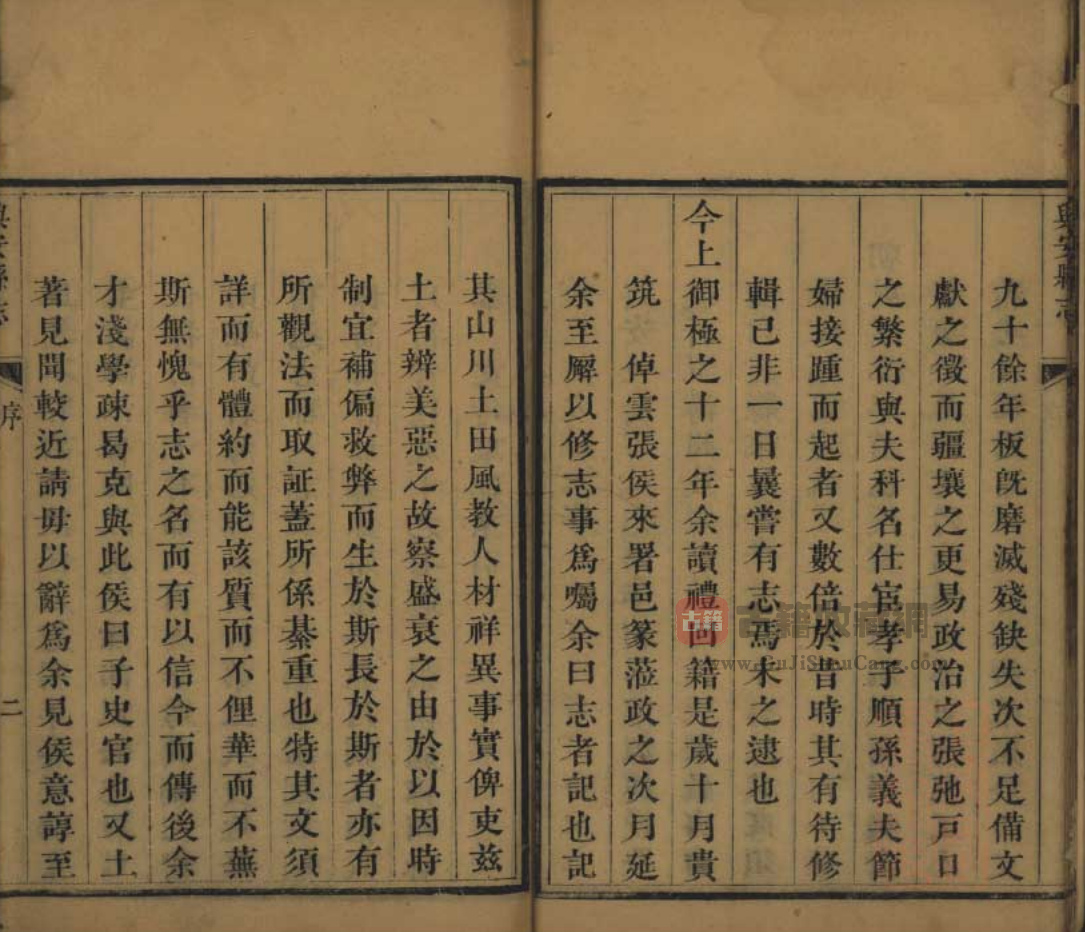 興安縣志
九十餘年板既磨滅殘缺失次不足備文
獻之徵而疆壤之更易政治之張弛戸口
之繁衍與夫科名仕宦孝子順孫義夫節
婦接踵而起者又數倍於昔時其有待修
輯已非一日曩嘗有志焉未之逮也
今上御極之十二年余讀禮回籍是歲十月貴
筑 倬雲張侯來署邑篆蒞政之次月延
余至廨以修志事爲囑余曰志者記也記
其山川土田風教人材祥異事實俾吏兹
土者辨美惡之故察盛衰之由於以因時
制宜補偏救弊而生於斯長於斯者亦有
所觀法而取証蓋所係綦重也特其文須
詳而有體約而能該質而不俚華而不蕪
斯無愧乎志之名而有以信今而傳後余
才淺學疎曷克與此侯曰子史官也又土
著見聞較近請毋以辭爲余見侯意諄至
興安縣志 序 二
古籍 古籍收藏網
www.GuJiShouCang.com